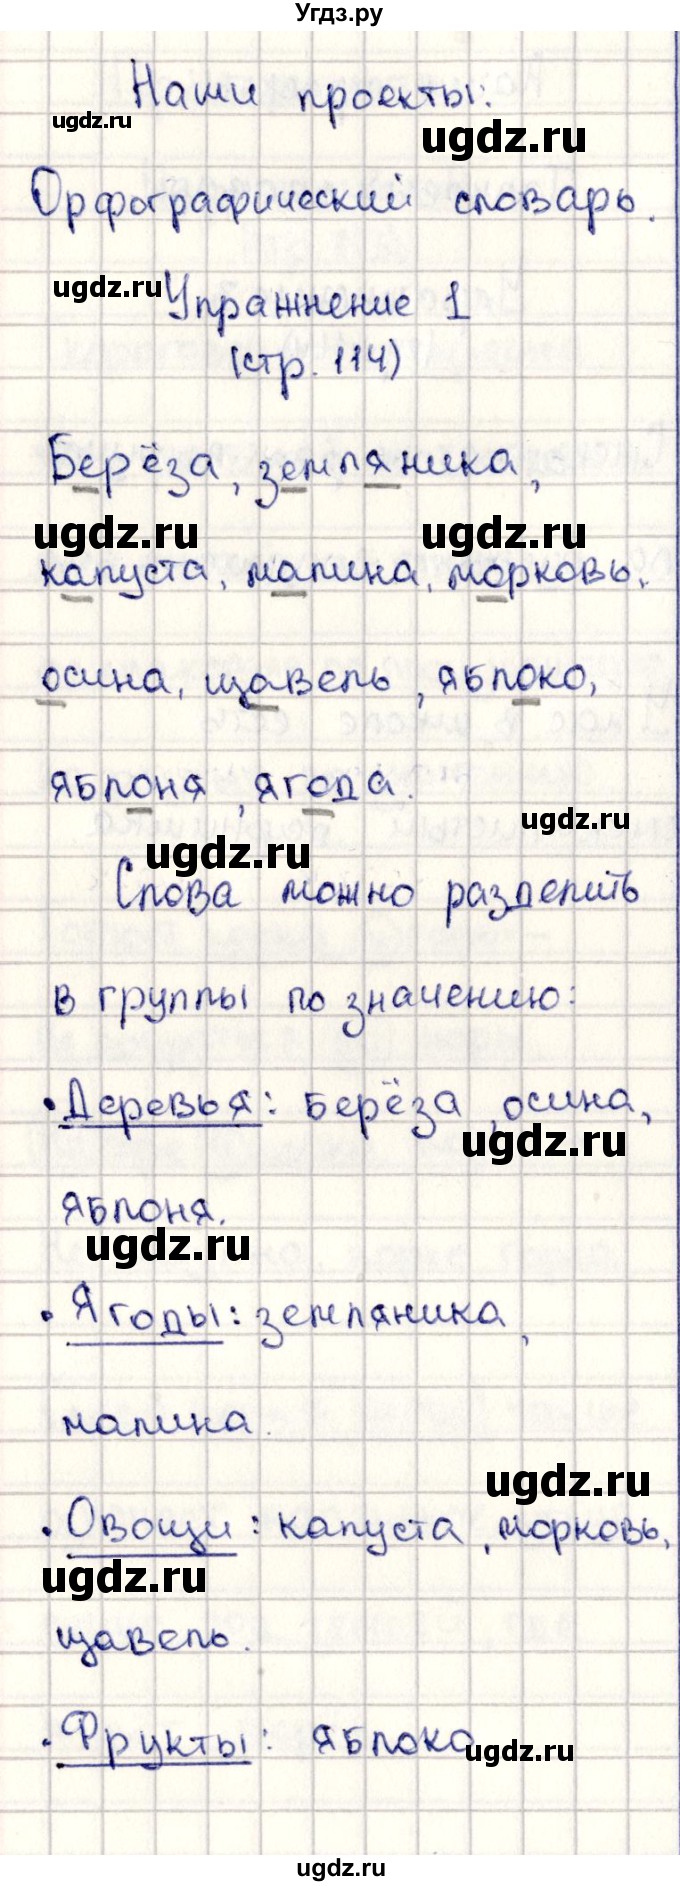 Угдз.ру
Наши проекты:
ugdz.ru
ugdz.ru
Орфографический словарь.
ugdz.ru
Упражнение 1
(стр. 114)
Берёза, земляника,
ugdz.ru ugdz.ru
капуста, малина, морковь,
осина, щавель, яблоко,
яблоня, ягода.
ugdz.ru
ugdz.ru
Слова можно разделить
в группы по значению:
• Деревья: берёза, осина,
ugdz.ru
яблоня.
ugdz.ru
• Ягоды: земляника,
малина.
ugdz.ru
• Овощи: капуста, морковь,
ugdz.ru
щавель.
• Фрукты: яблоко
ugdz.ru
ugdz.ru